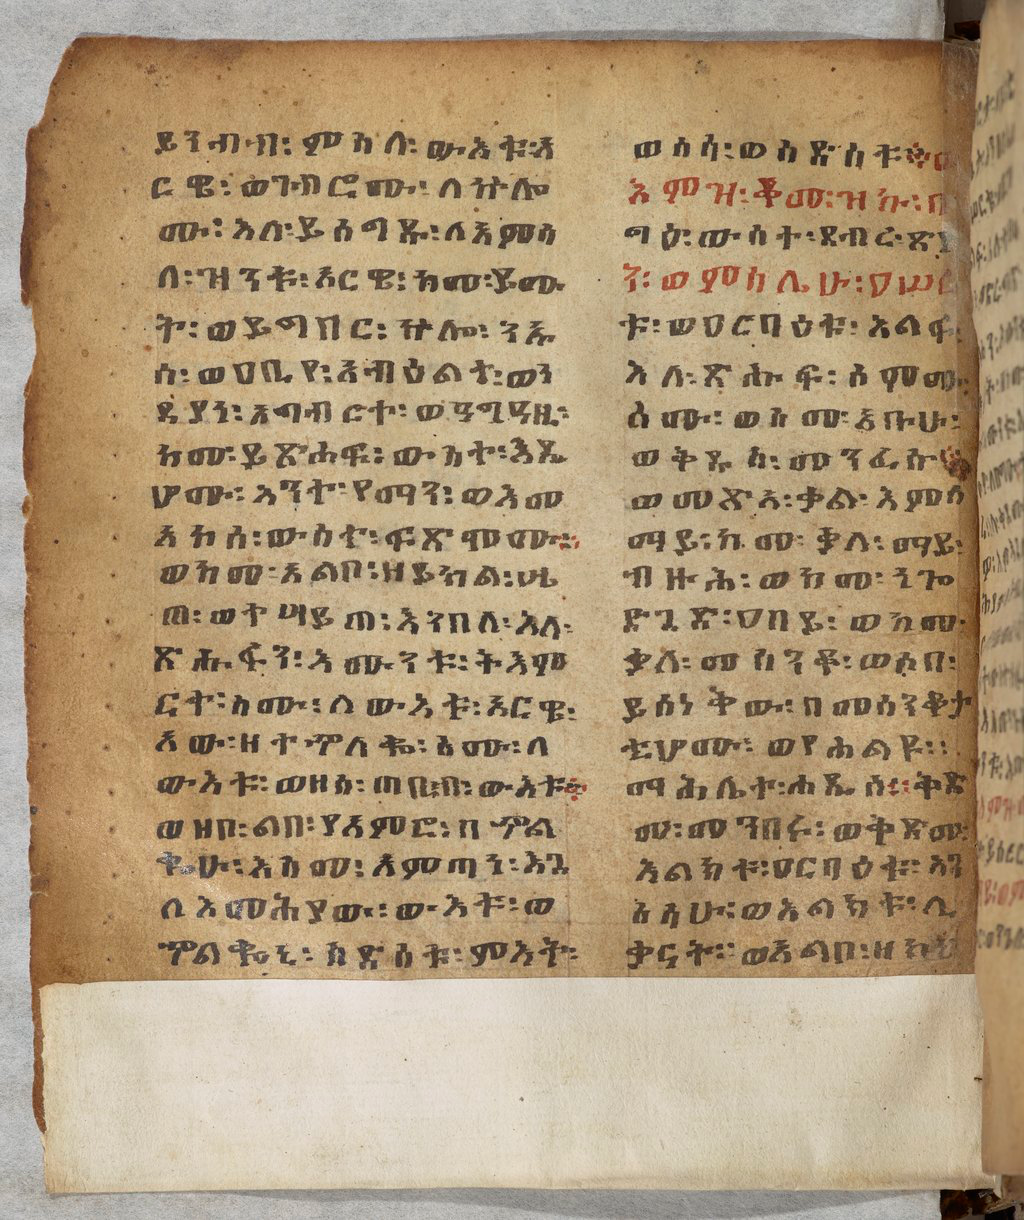 ይንብብ፡ ምስለ፡ ውእቱ፡አ
ርዌ፡ ወጉብሮሙ፡ ለኵሎ
ሙ፡ እለ፡ይሰግዱ፡ለአምሳ
ለ፡ዝንቱ፡አርዌ፡ከመ፡ይሙ
ት፡ወይግበር፡ኵሎ፡ንኡ
ሰ፡ወዐቢየ፡አብዕልት፡ወነ
ዳያን፡አግብርተ፡ወዓግዓዚ፡
ከመ፡ይጽሐፍ፡ውስተ፡እዴ
ሆሙ፡እንተ፡የማን፡ወእመ
አኮሰ፡ውስተ፡ፍጽሞሙ።
ወከመ፡አልቦ፡ዘይክል፡ሠዪ
ጠ፡ወተሣይጠ፡እንበለ፡እለ፡
ጽሑፍን፡እሙንቱ፡ትእም
ርተ፡ስሙ፡ለውእቱ፡አርዌ፡
አው፡ዘተኍለቈ፡ስሙ፡ለ
ውእቱ፡ወዘሰ፡ጠቢብ፡ውእቱ።
ወዘቦ፡ልበ፡ያእምሮ፡በኍል
ቈሁ፡እስመ፡ለምጣነ፡እጓ
ለእመሕያው፡ውእቱ፡ወ
ኍልቈኒ፡ስድስቱ፡ምእት፡
ወሰሳ፡ወስድስቱ።
እምዝ፡ቆሙ፡ዝኩ፡በ
ግዕ፡ውስተ፡ደብረ፡ጽዮ
ን፡ወምስሌሁ፡ዐሠር
ቱ፡ወዐርባዕቱ፡እልፍ፡
እለ፡ጽሑፍ፡ስሞሙ፡
ስሙ፡ወስመ፡አቡሁ፡
ወቅዱስ፡መንፈሱ።
ወመጽአ፡ቃል፡እምሰ
ማይ፡ከመ፡ቃለ፡ማይ፡
ብዙሕ፡ወከመ፡ነጐ
ድጓድ፡ዐበይ፡ወከመ፡
ቃለ፡መሰንቆ፡ወሶበ፡
ይሰነቅው፡በመሰንቆታ
ቲሆሙ፡ወየሐልዩ፡
ማሕሌተ፡ሐዲሰ፡ቅድ
መ፡መንበሩ፡ወቅድመ፡
እልክቱ፡ዐርባዕቱ፡እን
ስሳሁ፡ወእልክቱ፡ሊ
ቃናት፡ወአልቦ፡ዘክህ